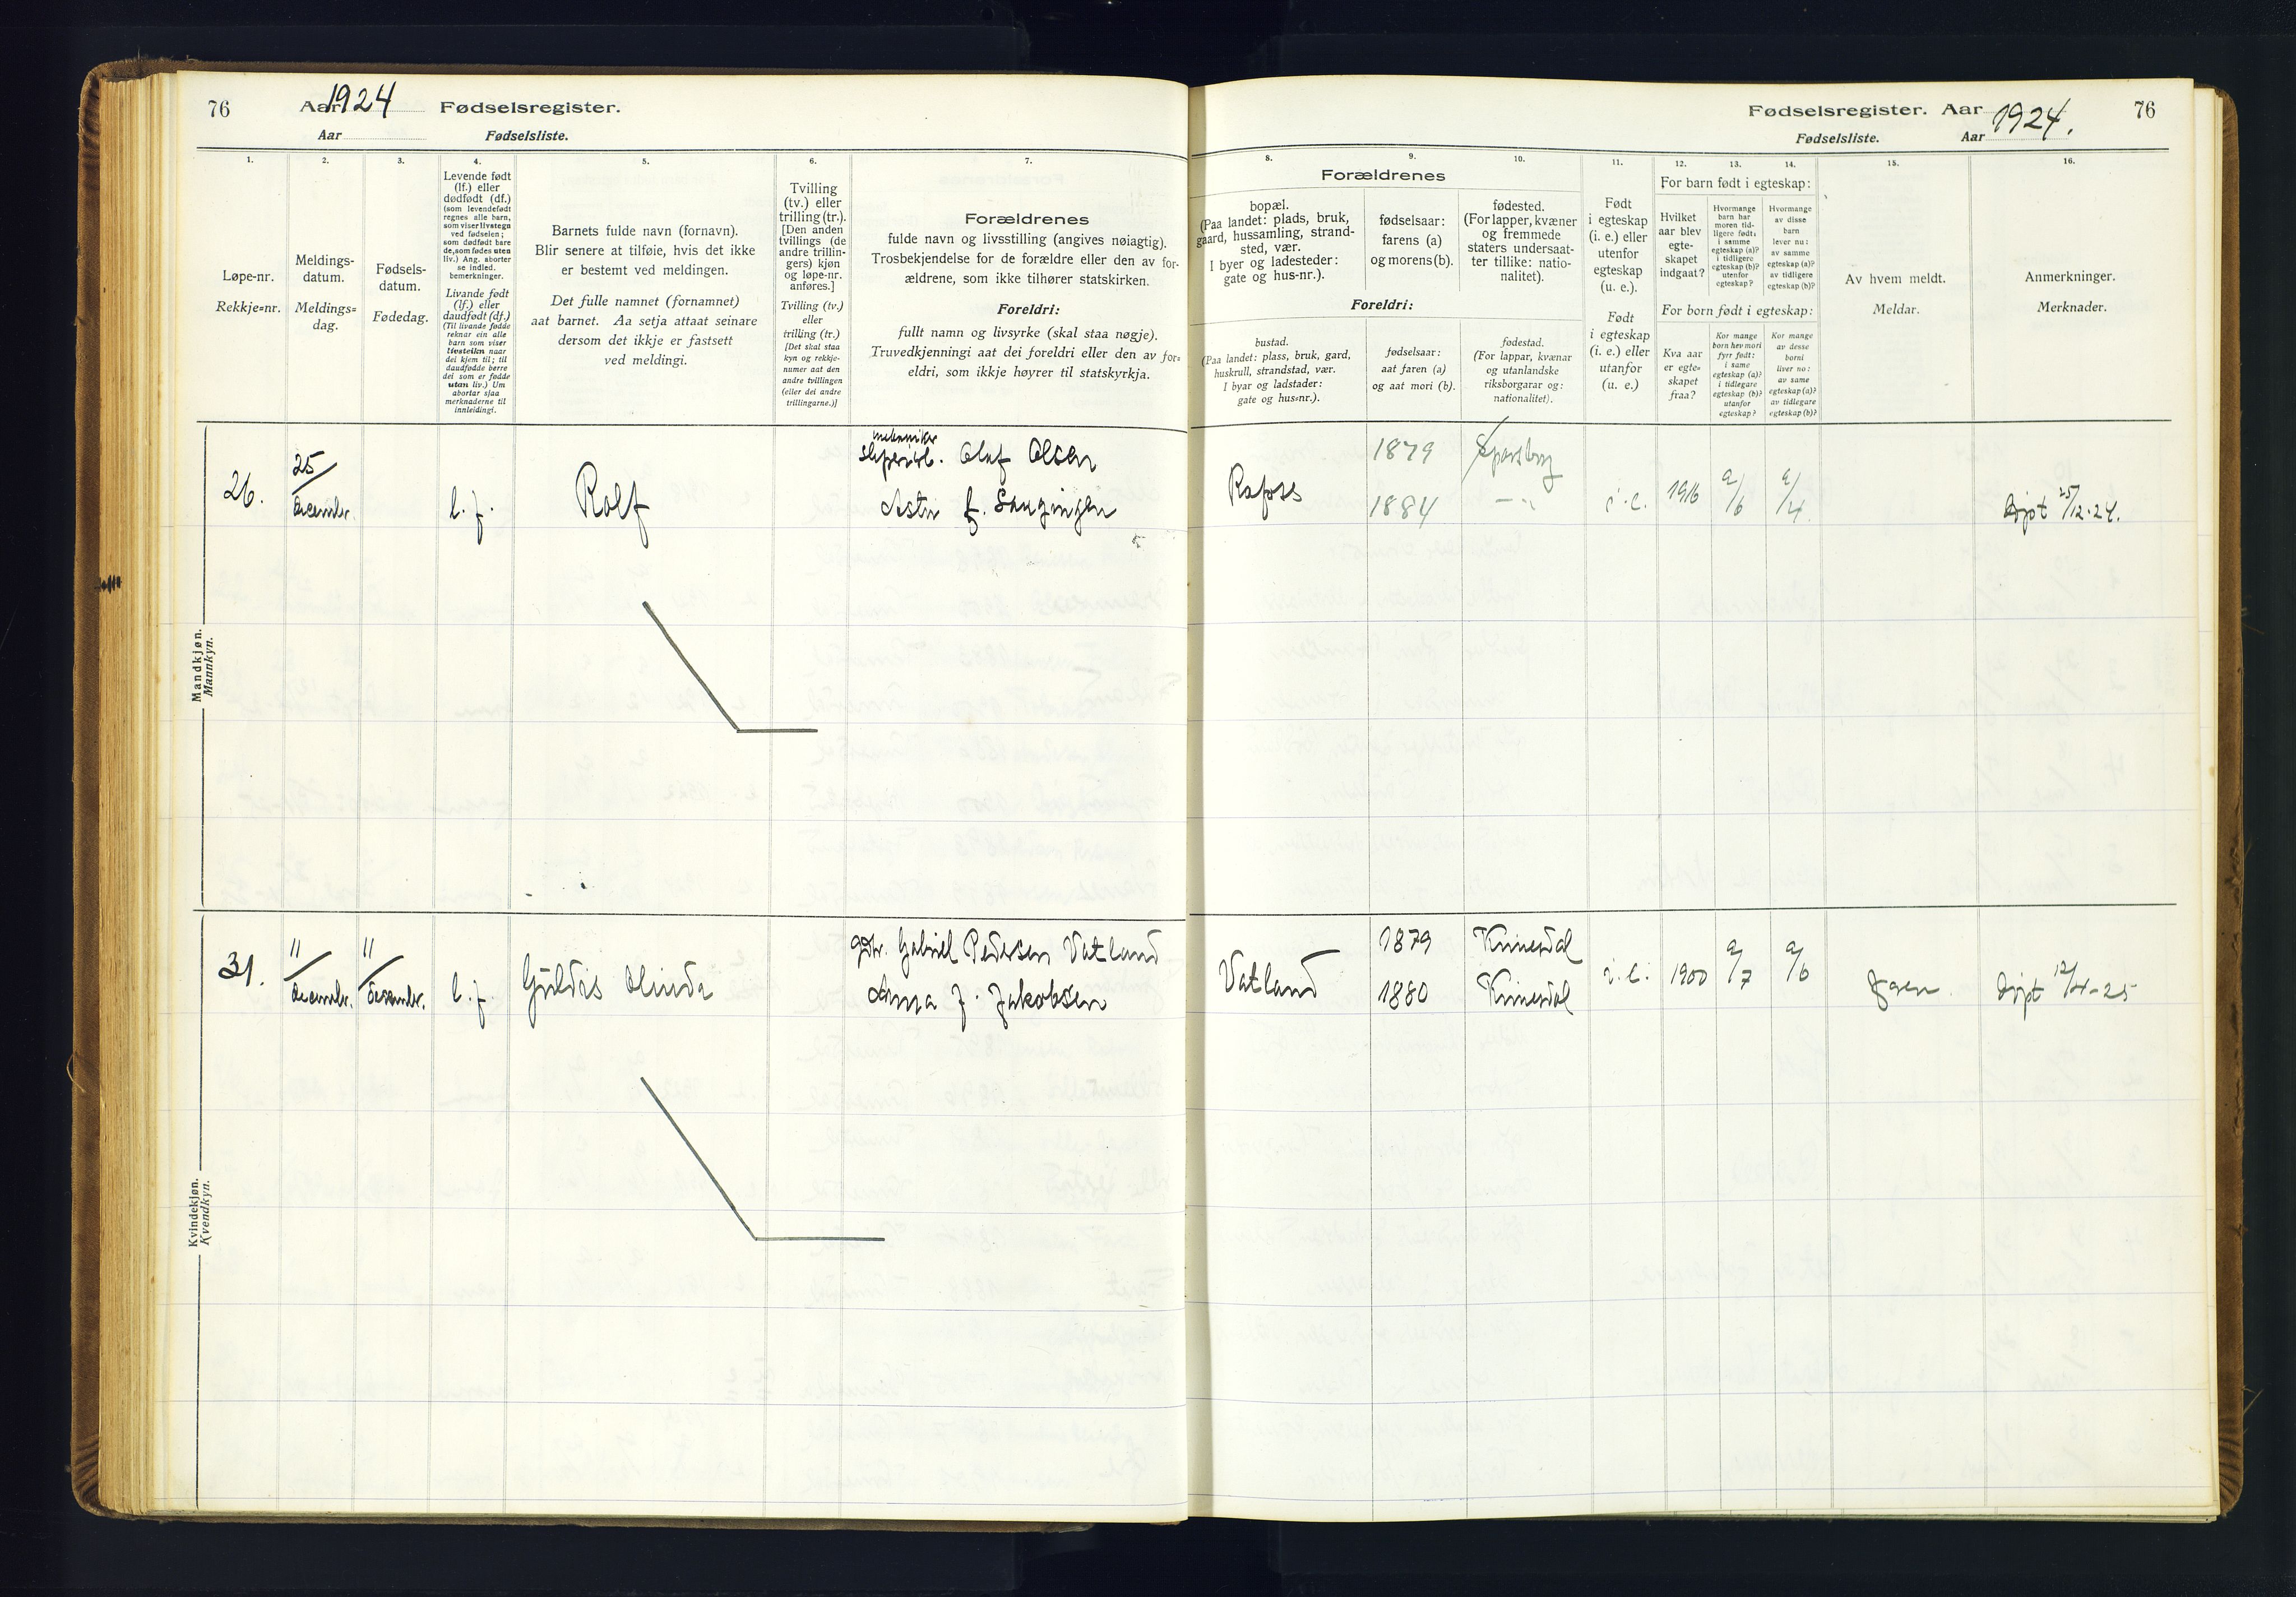 76 Aar 1924 Fødselsregister.
Aar Fødselsliste.
1. 2. 3. 4. 5. 6. 7.
Løpe-nr.
Rekkje=nr.
Meldings-
datum.
Meldings=
dag.
Fødsels-
datum.
Fødedag.
Levende født
(lf.) eller
dødfødt (df.)
(som levendefødt
regnes alle barn,
som viser livstegn
ved fødselen;
som dødfødt bare
de, som fødes uten
liv.) Ang. aborter
se indled.
bemerkninger.
Livande født
(lf.) eller
daudfødt (df.)
(Til livande fødde
reknar ein alle
barn som viser
livsteikn naar
dei kjem til; til
daudfødde berre
dei som er fødde
utan liv.) Um
abortar sjaa
merknaderne til
innleidingi.
Barnets fulde navn (fornavn).
Blir senere at tilføie, hvis det ikke
er bestemt ved meldingen.
Det fulle namnet (fornamnet)
aat barnet. Aa setja attaat seinare
dersom det ikkje er fastsett
ved meldingi.
Tvilling
(tv.) eller
trilling (tr.).
[Den anden
tvillings (de
andre trillin-
gers) kjøn
og løpe-nr.
anføres.]
Tvilling (tv.)
eller
trilling (tr.)
[Det skal staa
kyn og rekkje-
numer aat den
andre tvillingen
(eller dei andre
trillingarne.)]
Forældrenes
fulde navn og livsstilling (angives nøiagtig).
Trosbekjendelse for de forældre eller den av for-
ældrene, som ikke tilhører statskirken.
Foreldri:
fullt namn og livsyrke (skal staa nøgje).
Truvedkjenningi aat dei foreldri eller den av for=
eldri, som ikkje høyrer til statskyrkja.
Mandkjøn.
Mannkyn.
26. 25/ december. l. f. Rolf
Olaf Olsen
Kvindekjøn.
Kvendkyn.
31. 11/ december. 11/ december. l. f. Guldis Olinda
gbr. Gabriel Pedersen Vatland
Anna J. Jakobsen
Fødselsregister. Aar 1924. 76
Fødselsliste. Aar
8. 9. 10. 11. 12. 13. 14. 15. 16.
Forældrenes
bopæl.
(Paa landet: plads, bruk,
gaard, hussamling, strand-
sted, vær.
I byer og ladesteder:
gate og hus-nr.).
fødselsaar:
farens (a)
og morens (b).
fødested.
(For lapper, kvæner
og fremmede
staters undersaat-
ter tillike: natio-
nalitet).
Foreldri:
bustad.
(Paa landet: plass, bruk, gard,
huskrull, strandstad, vær.
I byar og ladstader:
gate og hus=nr.).
fødselsaar:
aat faren (a)
og aat mori (b).
fødestad.
(For lappar, kvænar
og utanlandske
riksborgarar og:
nationalitet).
Født
i egteskap
(i. e.) eller
utenfor
egteskap
(u. e.).
Født
i egteskap
(i. e.) eller
utanfor
(u. e.)
For barn født i egteskap:
Hvilket
aar blev
egte-
skapet
indgaat?
Hvormange
barn har
moren tid-
ligere født:
i samme
egteskap (a)?
i tidligere
egteskap (b)?
utenfor
egteskap?
Hvormange
av disse
barn
lever nu:
av samme
egteskap (a)?
av tidligere
egteskap (b)?
For born født i egteskap:
Kva aar
er egte=
skapet
fraa?
Kor mange
born hev mori
fyrr født:
i same
egteskap (a)?
i tidlegare
egteskap (b)?
utanfor
egteskap?
Kor mange
av desse
borni
liver no:
av same
egteskap (a)?
av tidlegare
egteskap (b)?
Av hvem meldt.
Meldar.
Anmerkninger.
Merknader.
1879 Sparsborg
Rafoss 1884 – " i. e. 1916 a/6 a/4 Døpt 25/12-24.
1879 Kvinesdal
Vatland 1880 Kvinesdal i. e. 1900 a/7 a/6 faren. Døpt 12/4-25